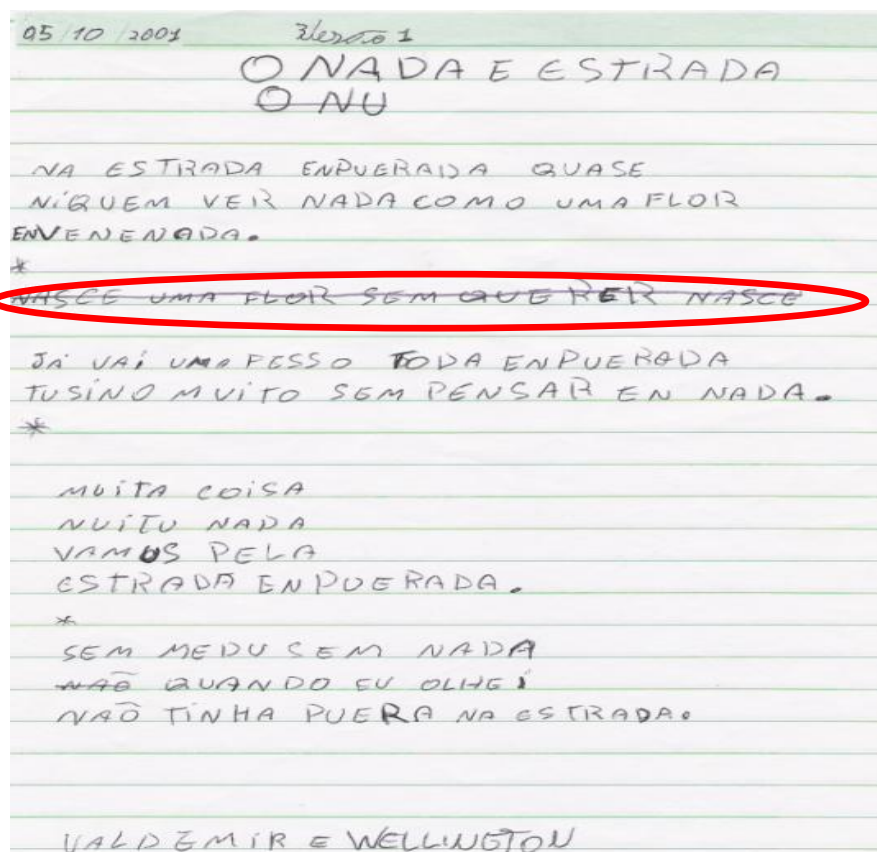 05/10/2001 Versão 1
O NADA E ESTRADA
O NU
NA ESTRADA ENPUERADA QUASE
NiQUEM VER NADA COMO UMA FLOR
ENVENENADA.
*
NASCE UMA FLOR SEM QUERER NASCE
JA VAi UMA PESSO TODA ENPUERADA
TUSiNO MUiTO SEM PENSAR EN NADA.
*
MUiTA COiSA
NUiTU NADA
VAMOS PELA
ESTRADA ENPUERADA.
*
SEM MEDU SEM NADA
NÃO QUANDO EU OLHEi
NÃO TiNHA PUERA NA ESTRADA.
VALDEMiR E WELLiNGTON